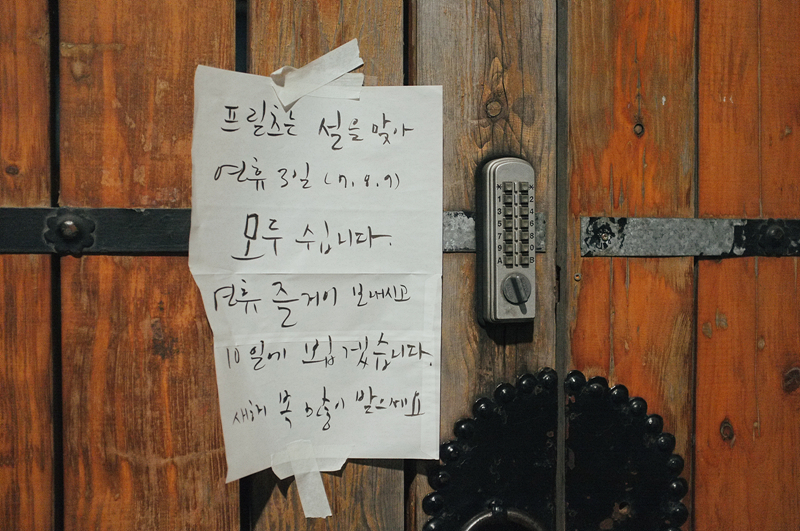 프릳츠는 설을 맞아
연휴 3일 (7.8.9)
모두 쉽니다.
연휴 즐거이 보내시고
10일에 뵙겠습니다.
새해 복 많이 받으세요
1 2
3 4
5 6
7 8
9 0
A B